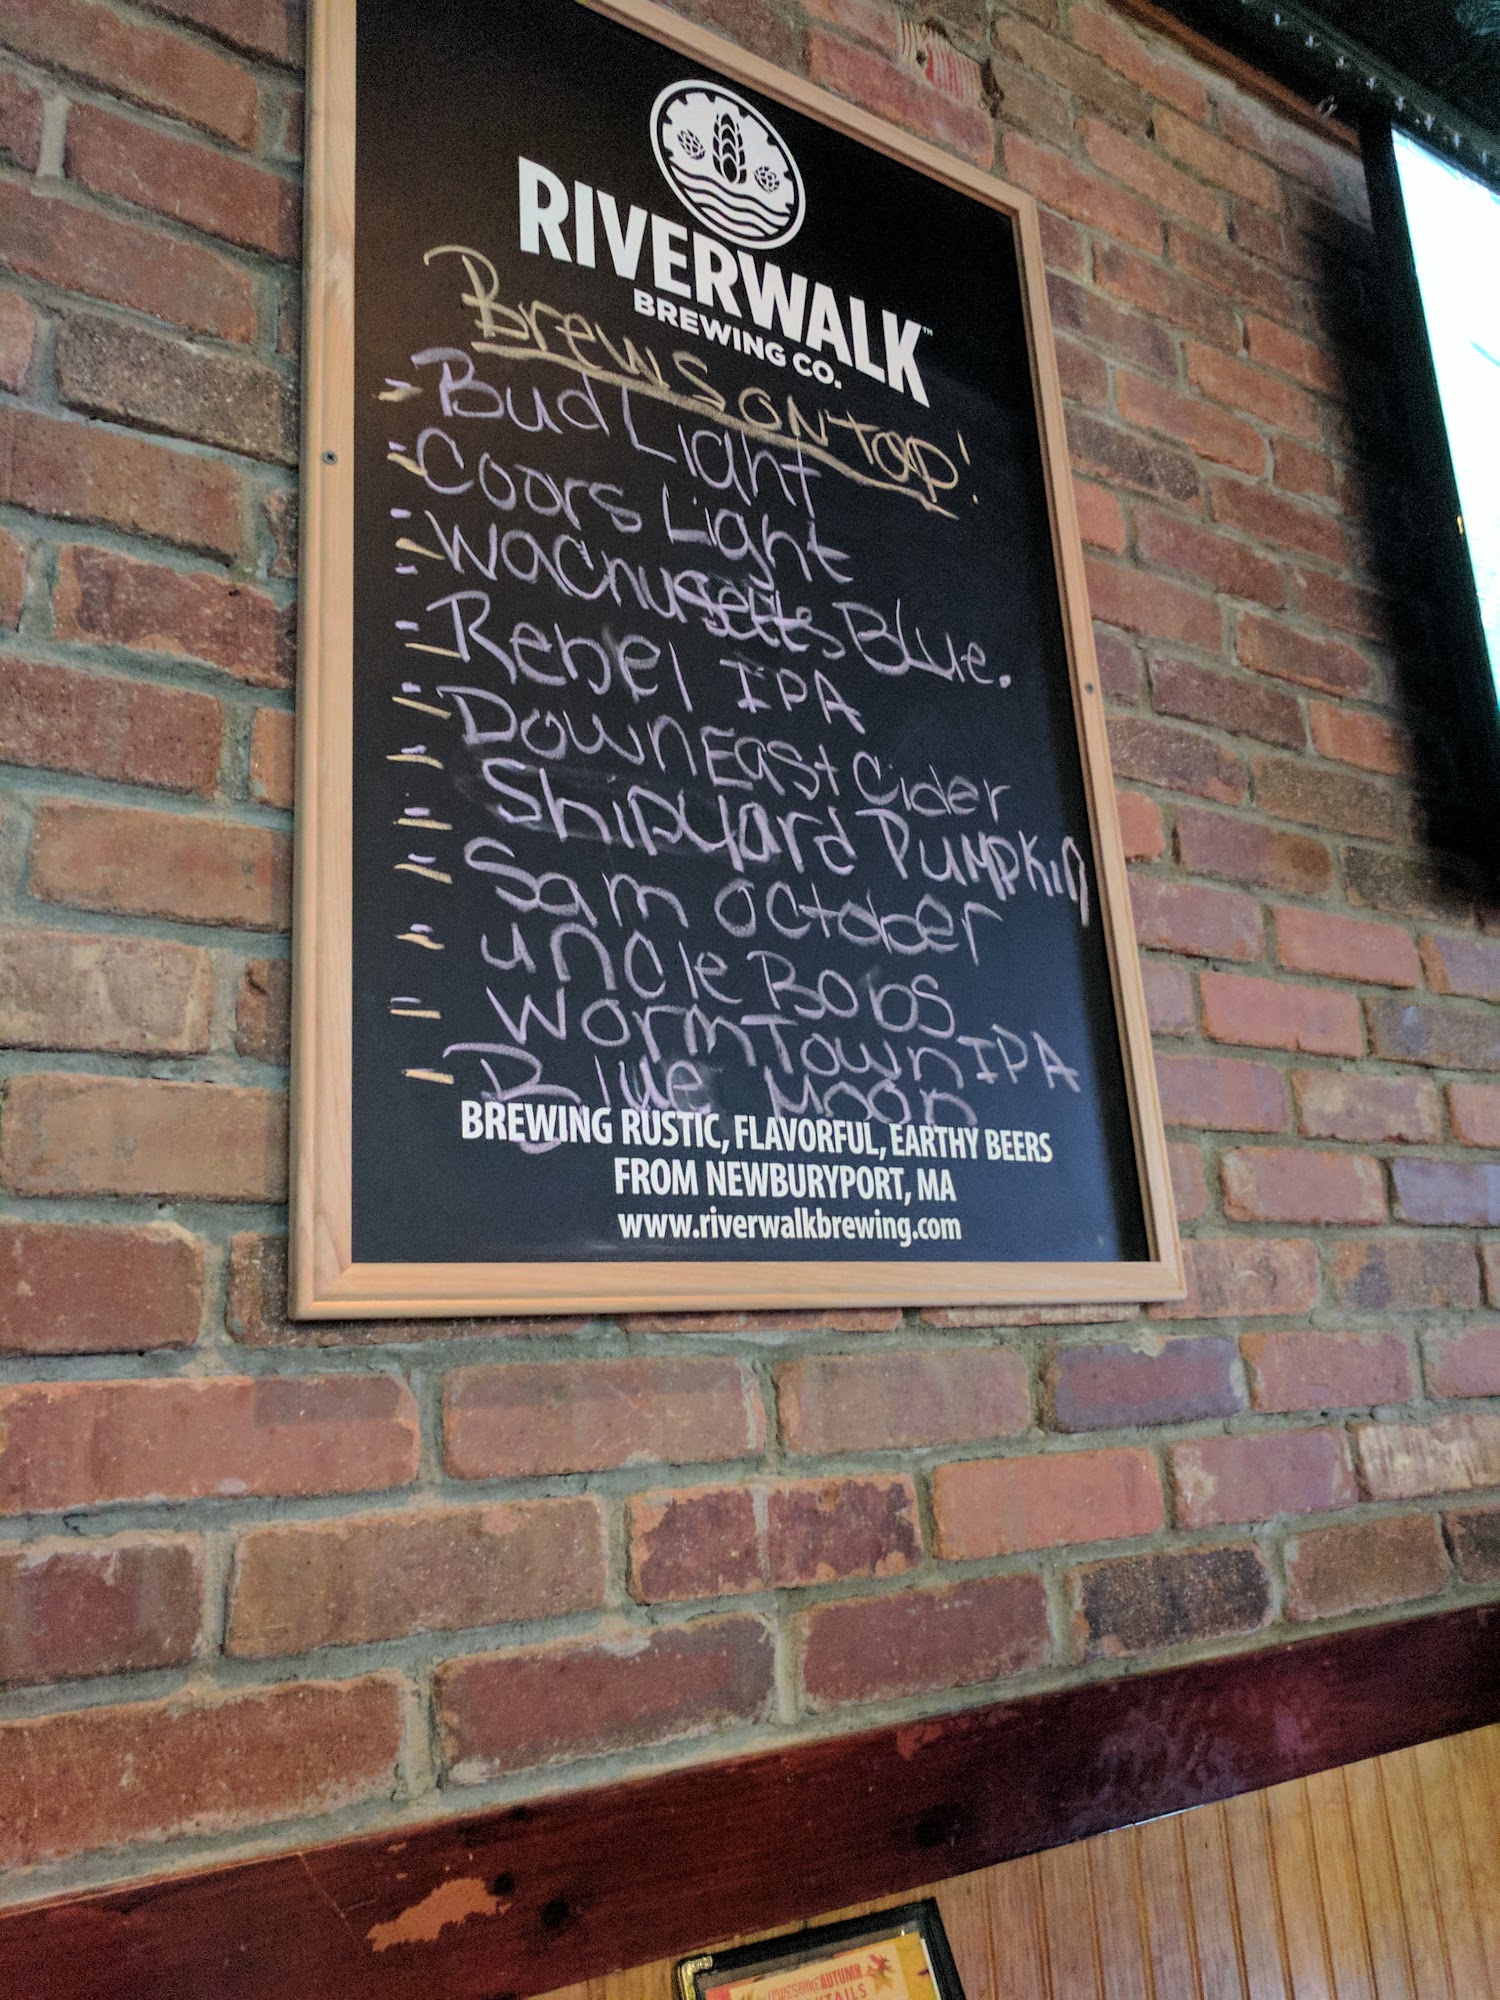 RIVERWALK™
BREWING CO.
Brews on tap!
- Bud Light
- Coors Light
- Wachusetts Blue.
- Rebel IPA
- Down East Cider
- Shipyard Pumpkin
- Sam October
- Uncle Bobs
- WormTown IPA
- Blue Moon
BREWING RUSTIC, FLAVORFUL, EARTHY BEERS
FROM NEWBURYPORT, MA
www.riverwalkbrewing.com
AUTUMN